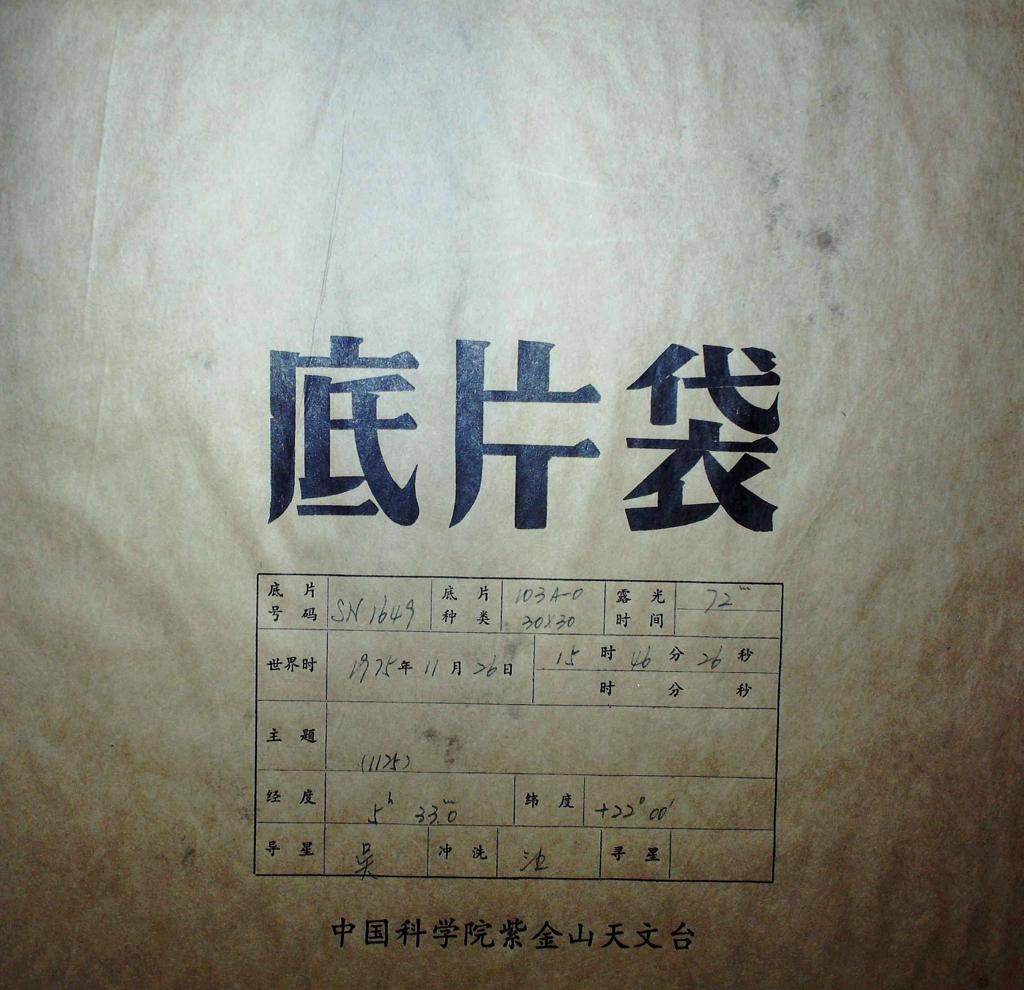 底片袋
底片号码 SN 1649 底片种类 103A-O 30X30 露光时间 72m
世界时 1975年11月26日 15时46分26秒
时 分 秒
主题 (1125)
经度 5h 33.m0 纬度 +22°00'
导星 吴 冲洗 寻星
中国科学院紫金山天文台